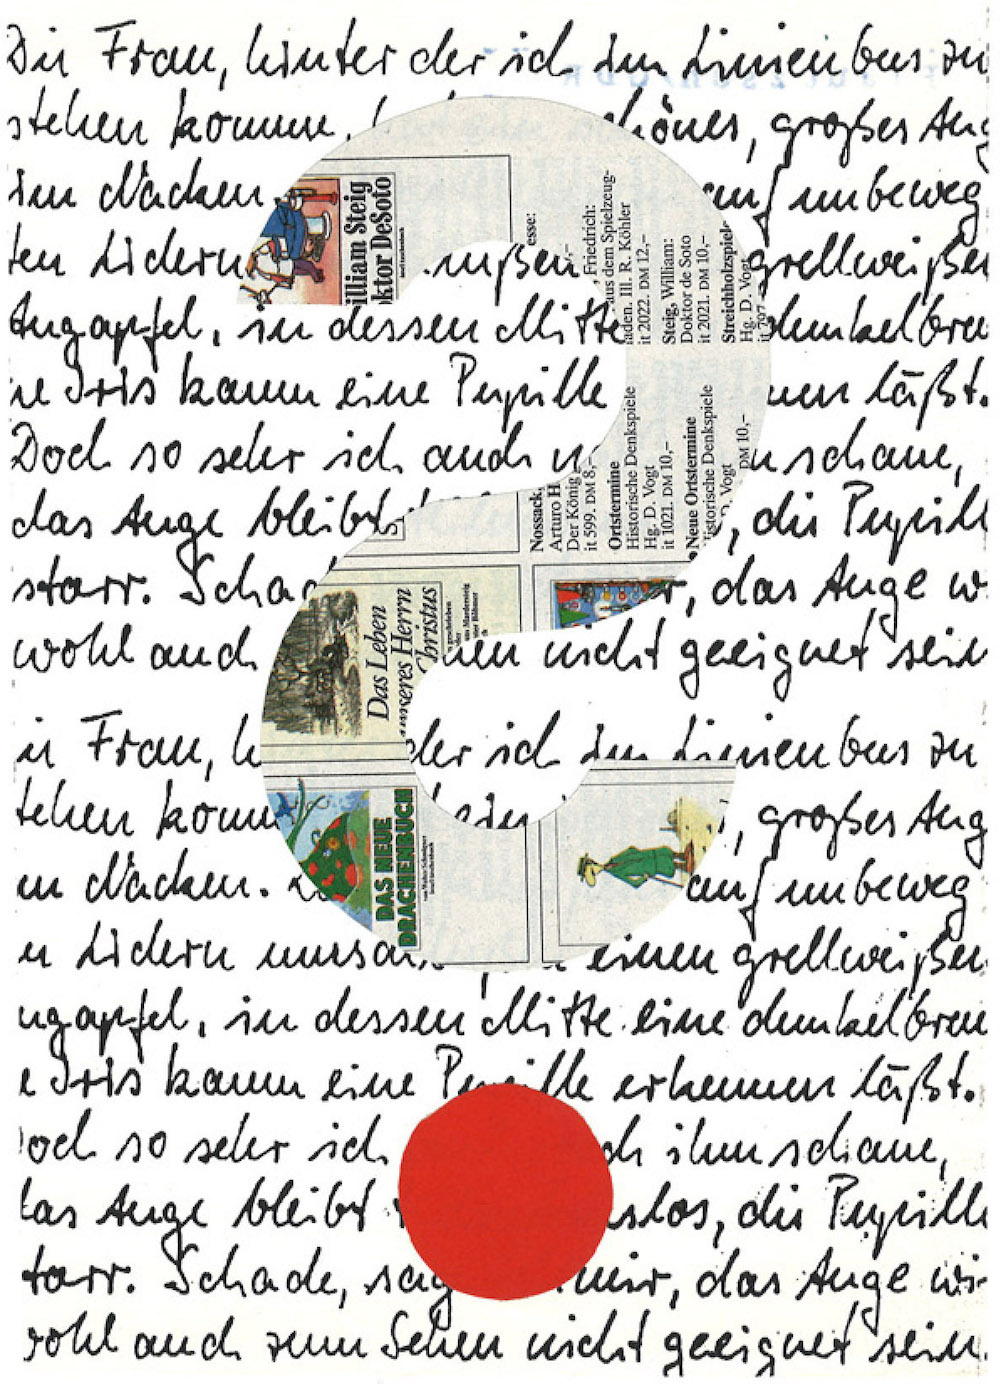 Die Frau, hinter der ich im Linienbus zu
stehen komme, schönes, großes Aug
im Nacken auf unbeweg
ten Lidern außen grellweißen
Augapfel, in dessen Mitte dunkelbrau
ne Iris kaum eine Pupille nen läßt.
Doch so sehr ich auch n schaue,
das Auge bleibt , die Pupill
starr. Schad r, das Auge w
wohl auch hen nicht geeignet sein
ie Frau, h der ich im Linienbus zu
tehen komm ein , großes Aug
m Nacken. auf unbeweg
n Lidern umsä einen grellweißen
ugapfel, in dessen Mitte eine dunkelbrau
e Iris kaum eine Pupille erkennen läßt.
och so sehr ich ch ihm schaue,
das Auge bleibt gslos, die Pupill
tarr. Schade, sag mir, das Auge wi
wohl auch zum Sehen nicht geeignet sein.
illiam Steig
oktor DeSoto
esse:
Friedrich:
aus dem Spielzeug-
laden. Ill. R. Köhler
it 2022. DM 12,–
Steig, William:
Doktor de Soto
it 2021. DM 10,–
Streichholzspiele
Hg. D. Vogt
it 797
Nossack,
Arturo H
Der König
it 599. DM 8,–
Ortstermine
Historische Denkspiele
Hg. D. Vogt
it 1021. DM 10,–
Neue Ortstermine
Historische Denkspiele
D. Vogt
DM 10,–
Das Leben
unseres Herrn
Christus
DAS NEUE
DRACHENBUCH